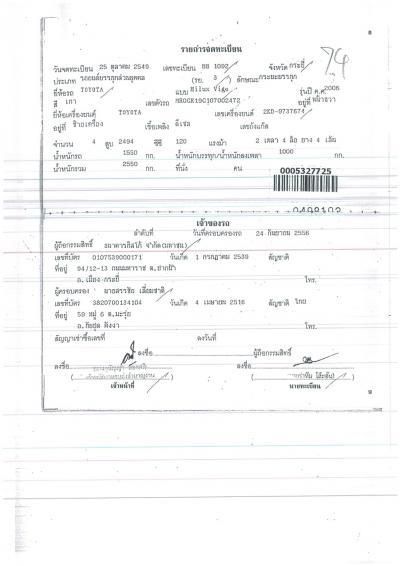 รายการจดทะเบียน
วันจดทะเบียน 25 ตุลาคม 2549 เลขทะเบียน บษ 1092 จังหวัด กระบี่
ประเภท รถยนต์บรรทุกส่วนบุคคล (รย. 3 ) ลักษณะ กระบะบรรทุก
ยี่ห้อรถ TOYOTA แบบ Hilux Vigo รุ่นปี ค.ศ. 2006
สี เทา เลขตัวรถ อยู่ที่
ยี่ห้อเครื่องยนต์ TOYOTA เลขเครื่องยนต์ 2KD-9737674
อยู่ที่ เชื้อเพลิง ดีเซล เลขถังแก๊ส
จำนวน 4 สูบ 2494 ซีซี 120 แรงม้า 2 เพลา 4 ล้อ ยาง 4 เส้น
น้ำหนักรถ 1550 กก. น้ำหนักบรรทุก/น้ำหนักลงเพลา 1000 กก.
น้ำหนักรวม 2550 กก. ที่นั่ง คน
0005327725
เจ้าของรถ
ลำดับที่ วันที่ครอบครองรถ 24 กันยายน 2556
ผู้ถือกรรมสิทธิ์ ธนาคารทิสโก้ จำกัด(มหาชน)
เลขที่บัตร 0107539000171 วันเกิด 1 กรกฎาคม 2539 สัญชาติ
ที่อยู่ 94/12-13 ถนนมหาราช ต.ปากน้ำ
อ.เมือง กระบี่ โทร.
ผู้ครอบครอง
เลขที่บัตร 3820700134104 วันเกิด 4 เมษายน 2516 สัญชาติ ไทย
ที่อยู่ 59 หมู่ 6 ต.มะรุ่ย
อ.ทับปุด พังงา โทร.
สัญญาเช่าซื้อเลขที่ ลงวันที่
ลงชื่อ ผู้ถือกรรมสิทธิ์
ลงชื่อ ลงชื่อ
เจ้าหน้าที่ นายทะเบียน